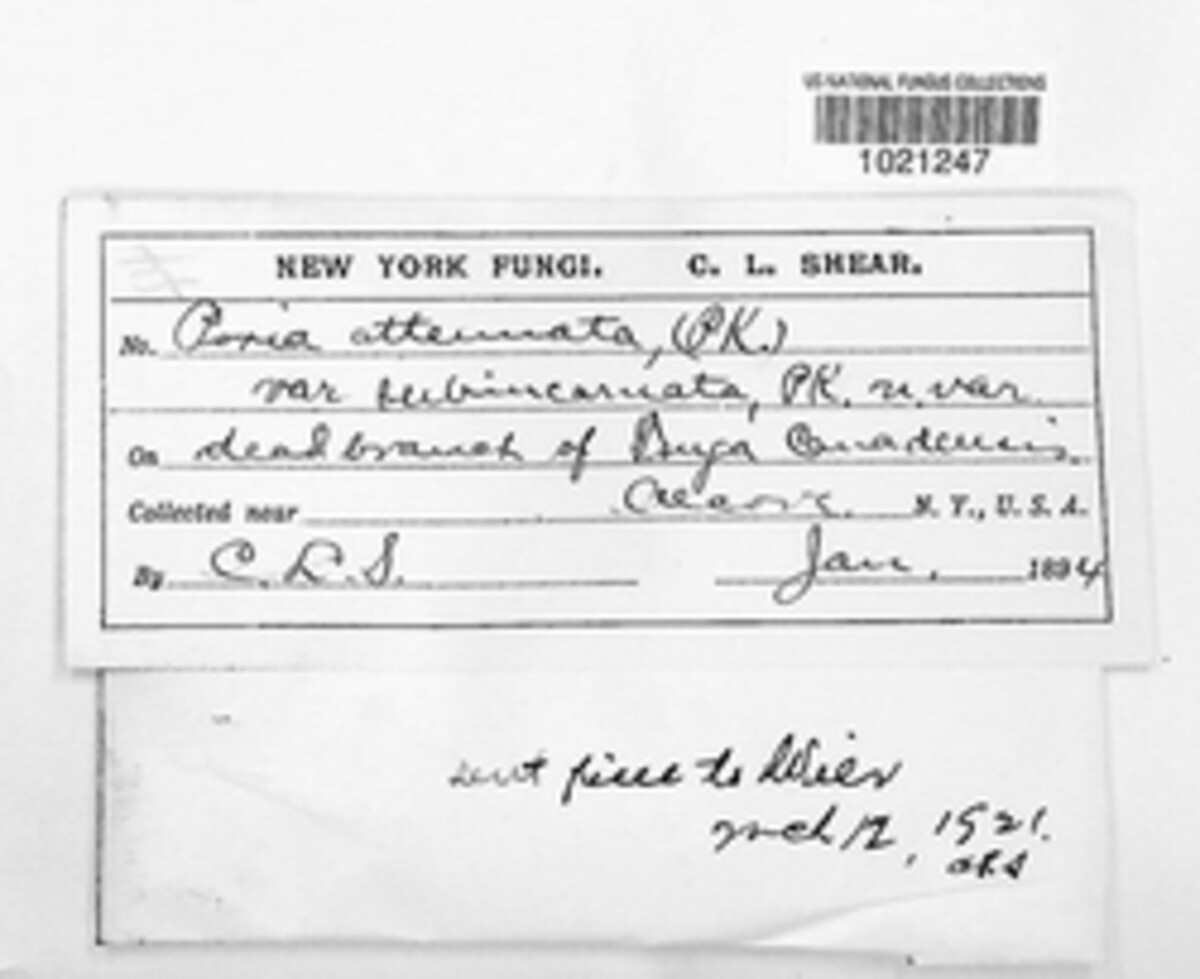 US NATIONAL FUNGUS COLLECTIONS
1021247
NEW YORK FUNGI. C. L. SHEAR.
No. Poria attenuata, (PK.)
var subincarnata, PK. n. var.
On dead branch of Tsuga Canadensis.
Collected near Alcove. N. Y., U. S. A.
By C. L. S. Jan. 1894
sent piece to Weir
Mch 12, 1921.